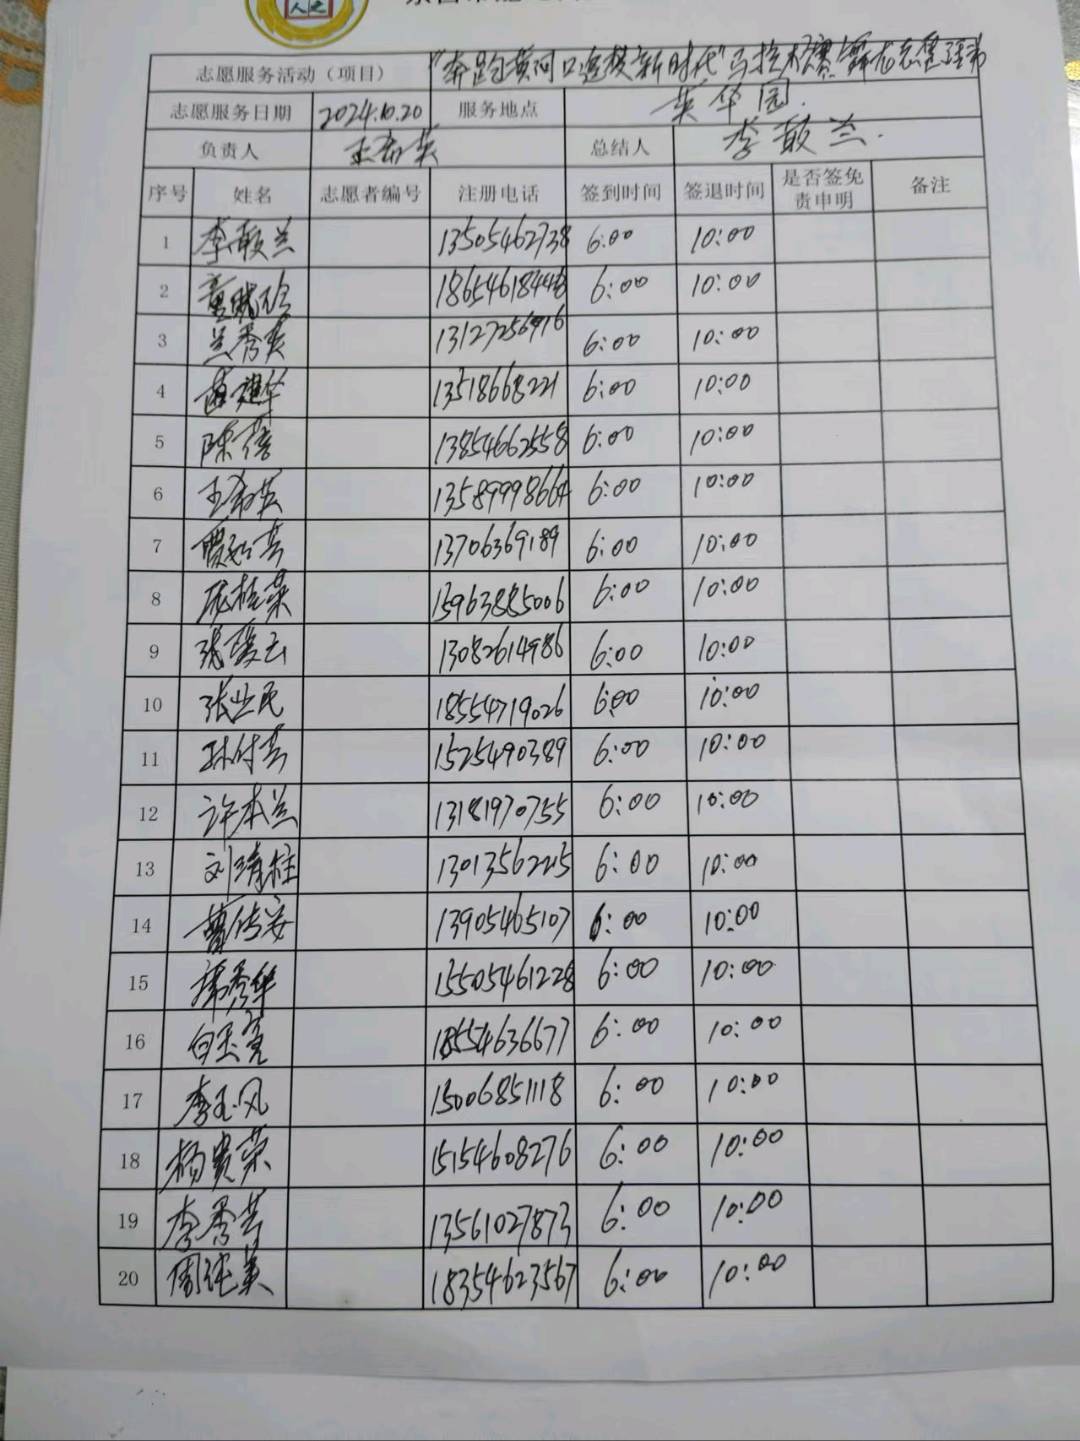 志愿服务活动（项目） "奔跑黄河口追梦新时代"马拉松赛舞龙志愿服务
志愿服务日期 2024.10.20 服务地点 英华园.
负责人 王希英 总结人 李敏兰.
序号 姓名 志愿者编号 注册电话 签到时间 签退时间 是否签免责申明 备注
1 李敏兰 13505462738 6:00 10:00
2 18654618448 6:00 10:00
3 吴秀英 13127256916 6:00 10:00
4 建华 13518668221 6:00 10:00
5 陈蓓 13854662558 6:00 10:00
6 王希英 13589998664 6:00 10:00
7 13706369189 6:00 10:00
8 庞桂荣 13963885006 6:00 10:00
9 张爱云 13082614986 6:00 10:00
10 张世民 18554719026 6:00 10:00
11 孙付芸 15254490389 6:00 10:00
12 许本兰 13181970755 6:00 10:00
13 刘靖柱 13013565225 6:00 10:00
14 曹传安 13905465107 6:00 10:00
15 秀华 15505461228 6:00 10:00
16 白玉亮 18554636677 6:00 10:00
17 李玉凤 15006851118 6:00 10:00
18 杨贵荣 15154608276 6:00 10:00
19 李秀芸 13561027873 6:00 10:00
20 周继英 18354623567 6:00 10:00